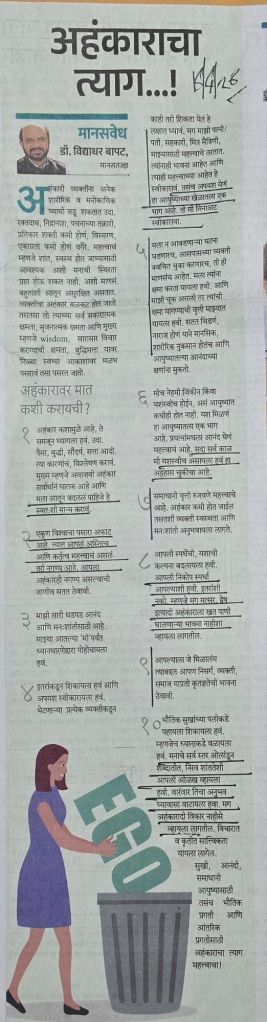 अहंकाराचा
त्याग...!
मानसवेध
डॉ. विद्याधर बापट,
मानसतज्ज्ञ
अहंकारी व्यक्तींना अनेक
शारीरिक व मनोकायिक
व्याधी जडू शकतात उदा.
रक्तदाब, निद्रानाश, पचनाच्या तक्रारी,
प्रतिकार शक्ती कमी होणं, विस्मरण,
एकाग्रता कमी होणं वगैरे. महत्त्वाचं
म्हणजे शांत, स्वस्थ होत जाण्यासाठी
आवश्यक अशी मनाची स्थिरता
प्राप्त होऊ शकत नाही. अशी माणसं
बहुतांशी आतून असुरक्षित असतात.
व्यक्तीचा अहंकार बळकट होत जातो
तसतसा तो त्याच्या सर्व सकारात्मक
क्षमता, सृजनात्मक क्षमता आणि मुख्य
म्हणजे wisdom, सारासार विचार
करण्याची क्षमता, बुद्धिमत्ता यावर
निळ्या स्वच्छ आकाशावर मळभ
पसरावं तसा पसरत जातो.
अहंकारावर मात
कशी करायची?
१ अहंकार कशामुळे आहे, ते
समजून घ्यायला हवं. उदा.
पैसा, बुद्धी, सौंदर्य, सत्ता आदी.
त्या कारणांचं, विश्लेषण करावं.
मुख्य म्हणजे अवाजवी अहंकार
सर्वार्थानं घातक आहे आणि
मला आतून बदललं पाहिजे हे
स्वतःशी मान्य करावं.
२ एकूण विश्वाचा पसारा अफाट
आहे. त्यात आपलं अस्तित्व
आणि कर्तृत्व महत्त्वाचं असलं
तरी नगण्य आहे. आपला
अहंकारही नगण्य असल्याची
जाणीव सतत ठेवावी.
३ माझी सारी धडपड आनंद
आणि मनःशांतीसाठी आहे.
माझ्या आतल्या 'मी'पर्यंत
ध्यानधारणेद्वारा पोहोचायला
हवं.
४ इतरांकडून शिकायला हवं आणि
अपयश स्वीकारायला हवं.
भेटणाऱ्या प्रत्येक व्यक्तीकडून
काही तरी शिकता येतं हे
लक्षात घ्यावं. मग माझी पत्नी/
पती, सहकारी, मित्र मैत्रिणी,
माझ्यासाठी महत्त्वाचे ठरतात.
त्यांनाही भावना आहेत आणि
त्याही महत्त्वाच्या आहेत हे
स्वीकारावं. तसंच अपयश येणं
हा आयुष्याच्या खेळातला एक
भाग आहे. तो मी विनाअट
स्वीकारावा.
५ मला न आवडणाऱ्या घटना
घडणारच, आसपासच्या व्यक्ती
क्वचित चुका करणारच, ती ही
माणसंच आहेत. मला त्यांना
क्षमा करता यायला हवी, आणि
माझी चूक असली तर त्यांची
क्षमा मागण्याची वृत्ती माझ्यात
यायला हवी. सतत चिडणं,
नाराज होणं याने मानसिक,
शारीरिक नुकसान होतंच आणि
आयुष्यातल्या आनंदाच्या
क्षणांना मुकतो.
६ मीच नेहमी जिंकीन किंवा
यशस्वीच होईन, असं आयुष्यात
कधीही होत नाही. यश मिळणं
हा आयुष्यातला एक भाग
आहे. प्रयत्नांमधला आनंद घेणं
महत्त्वाचं आहे. सदा सर्व काळ
मी यशस्वीच असायला हवं हा
अट्टहास चुकीचा आहे.
७ समाधानी वृत्ती रुजवणे महत्त्वाचे
आहे. अहंकार कमी होत जाईल
तसतशी व्यक्ती स्वस्थता आणि
मनःशांती अनुभवायला लागते.
८ आपली स्पर्धेची, यशाची
कल्पना बदलायला हवी.
आपली निकोप स्पर्धा
आपल्याशी हवी. इतरांशी
नको. म्हणजे मग मत्सर, द्वेष
इत्यादी अहंकाराला खत पाणी
घालणाऱ्या भावना नाहीशा
व्हायला लागतील.
९ आपल्याला जे मिळालंय
त्याबद्दल आपण निसर्ग, व्यक्ती,
समाज याप्रती कृतज्ञतेची भावना
ठेवावी.
१० भौतिक सुखांच्या पलीकडे
पाहायला शिकायला हवं.
म्हणजेच ध्यानाकडे वळायला
हवं. मनाचे सर्व स्तर ओलांडून
शब्दातीत, नित्य शांततेशी
आपली ओळख व्हायला
हवी. वारंवार तिचा अनुभव
घ्यावासा वाटायला हवा. मग
अहंकारादी विकार नाहीसे
व्हायला लागतील. विचारात
व कृतीत सात्त्विकता
यायला लागेल.
सुखी, आनंदी,
समाधानी
आयुष्यासाठी
तसंच भौतिक
प्रगती आणि
आंतरिक
प्रगतीसाठी
अहंकाराचा त्याग
महत्त्वाचा!
EGO